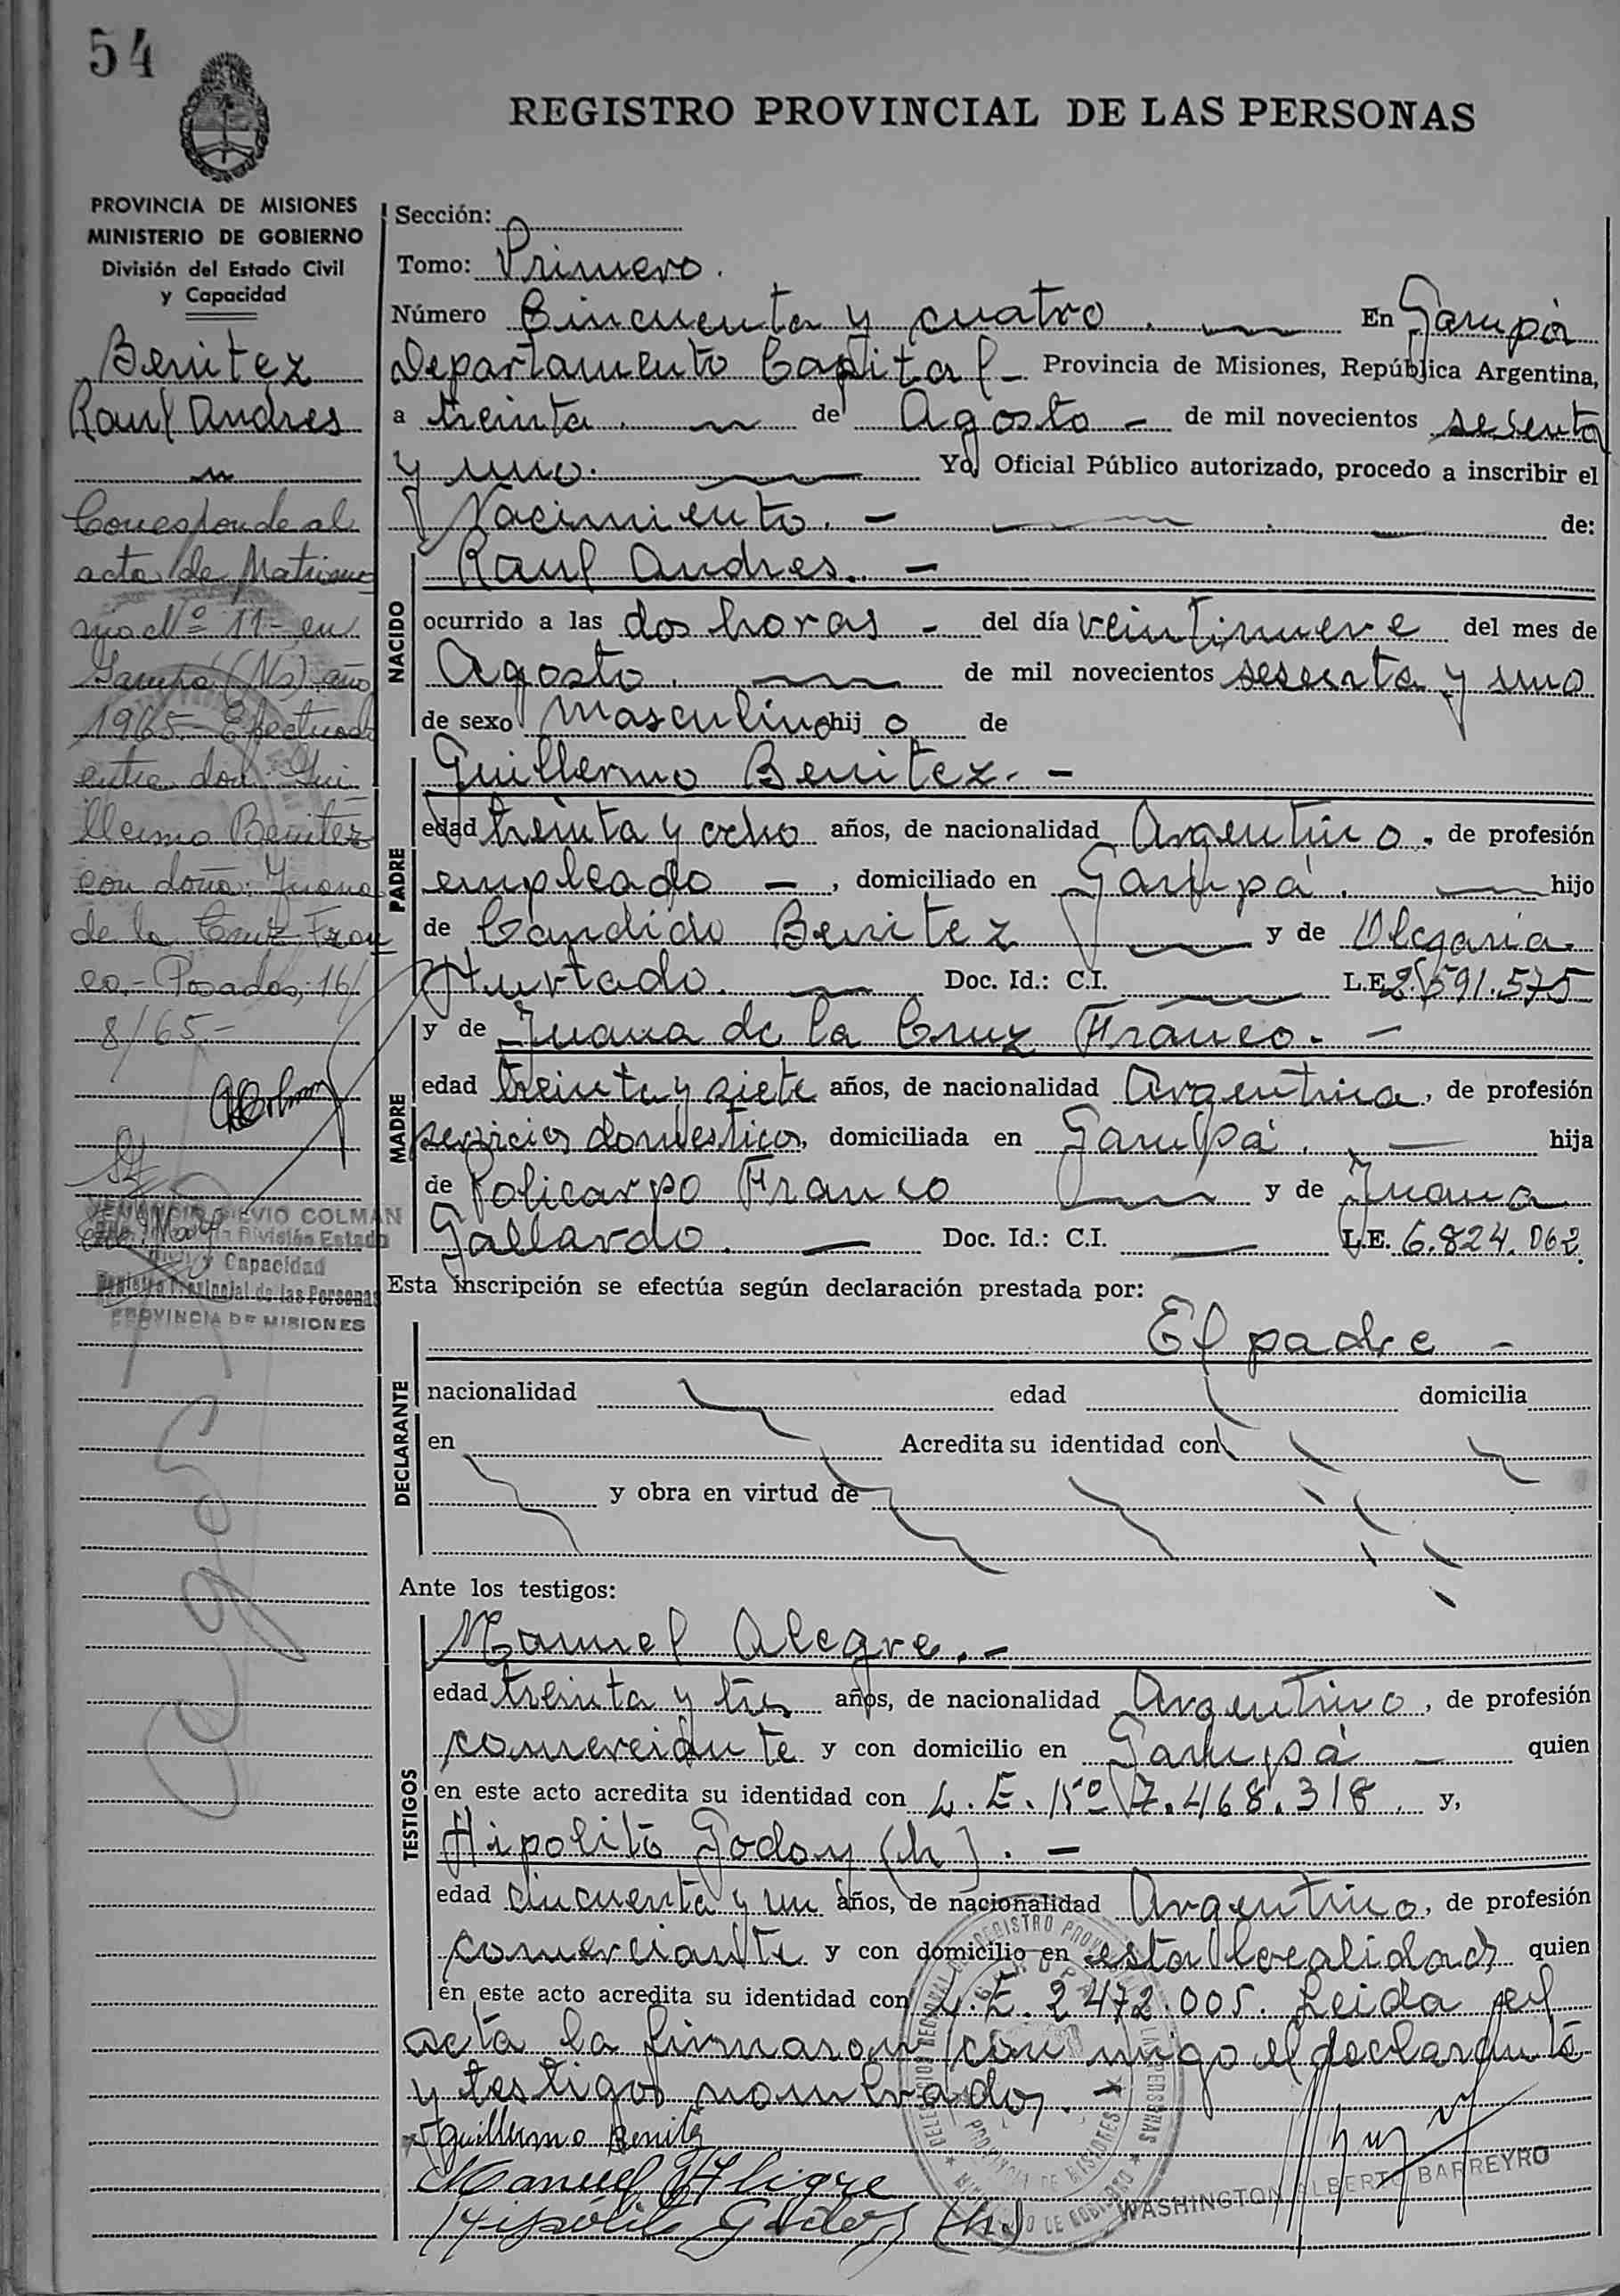 54
REGISTRO PROVINCIAL DE LAS PERSONAS
PROVINCIA DE MISIONES
MINISTERIO DE GOBIERNO
División del Estado Civil
y Capacidad
Benitez
Raul Andres
Corresponde al
acta de Matrimo
nio Nº 11- en
Garupá (Ms) año
1965.- Efectuado
entre don: Gui
llermo Benitez
con doña: Juana
de la Cruz Fran
co.- Posadas, 16/
8/65.-
SILVIO COLMAN
División Estado
Civil y Capacidad
Registro Provincial de las Personas
PROVINCIA DE MISIONES
Sección:
Tomo: Primero.
Número Cincuenta y cuatro. En Garupá
Departamento Capital - Provincia de Misiones, República Argentina,
a treinta. de Agosto - de mil novecientos sesenta
y uno. Yo, Oficial Público autorizado, procedo a inscribir el
Nacimiento. - de:
NACIDO
Raul Andres. -
ocurrido a las dos horas - del día veintinueve del mes de
Agosto. de mil novecientos sesenta y uno
de sexo masculino hijo de
PADRE
Guillermo Benitez. -
edad treinta y ocho años, de nacionalidad Argentino. de profesión
empleado -, domiciliado en Garupá. hijo
de Candido Benitez y de Olegaria
Hurtado. Doc. Id.: C.I. L.E. 2.591.575
MADRE
y de Juana de la Cruz Franco. -
edad treinta y siete años, de nacionalidad Argentina, de profesión
servicios domesticos, domiciliada en Garupá. - hija
de Policarpo Franco y de Juana
Gallardo. - Doc. Id.: C.I. L.E. 6.824.062.
Esta inscripción se efectúa según declaración prestada por:
DECLARANTE
El padre -
nacionalidad edad domicilia
en Acredita su identidad con
y obra en virtud de
Ante los testigos:
TESTIGOS
Manuel Alegre. -
edad treinta y tres años, de nacionalidad Argentino, de profesión
comerciante y con domicilio en Garupá - quien
en este acto acredita su identidad con L.E. Nº 7.468.318. y,
Hipolito Godoy (h). -
edad cincuenta y un años, de nacionalidad Argentino, de profesión
comerciante y con domicilio en esta localidad quien
en este acto acredita su identidad con L.E. 2.472.005. Leida el
acta la firmaron conmigo el declarante
y testigos nombrados. -
Guillermo Benitez
Manuel Aligre
Hipólito Godoy (h)
WASHINGTON ALBERTO BARREYRO